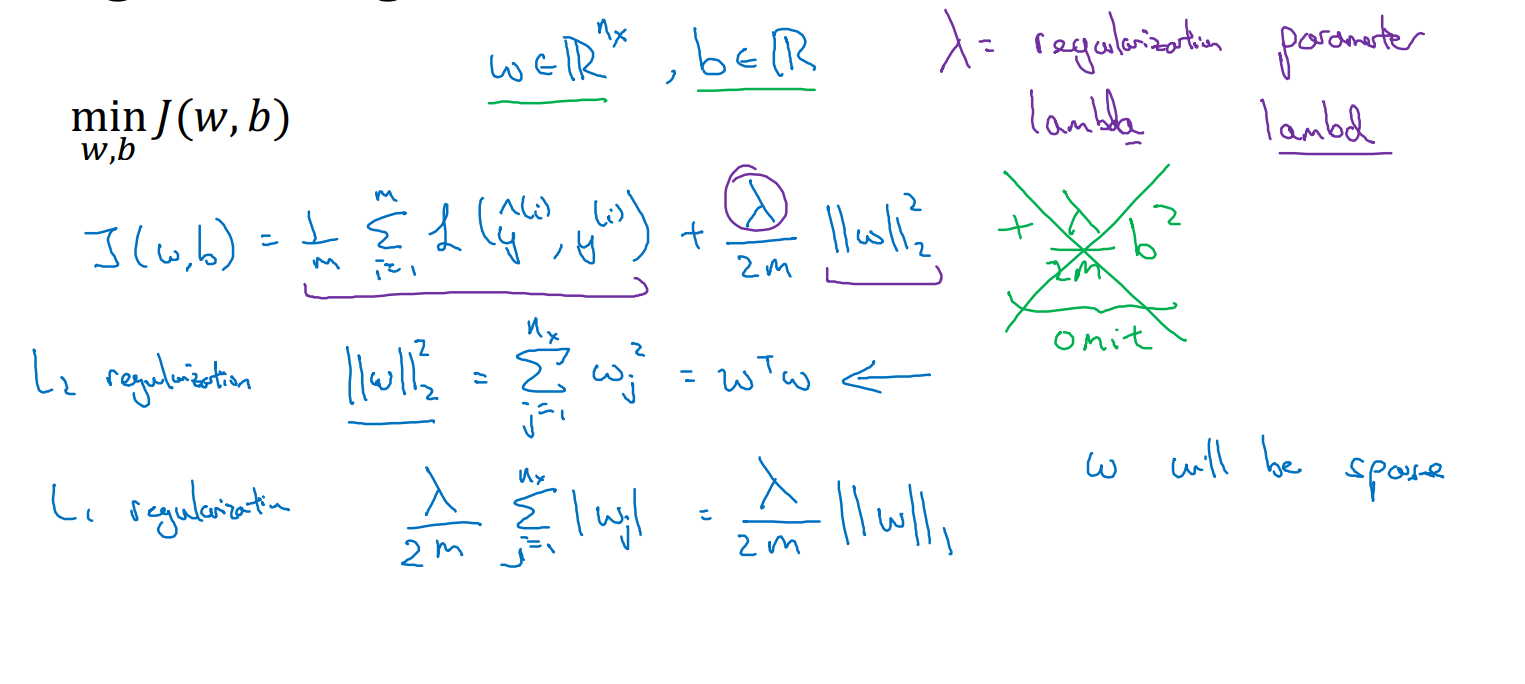 w ∈ ℝ^{n_x} , b ∈ ℝ
λ = regularization parameter
lambda lambd
min_{w,b} J(w, b)
J(w,b) = 1/m Σ_{i=1}^{m} L(ŷ^{(i)}, y^{(i)}) + λ/2m ||w||_2^2 + λ/2m b^2
omit
L_2 regularization ||w||_2^2 = Σ_{j=1}^{n_x} w_j^2 = w^T w ←
w will be sparse
L_1 regularization λ/2m Σ_{j=1}^{n_x} |w_j| = λ/2m ||w||_1